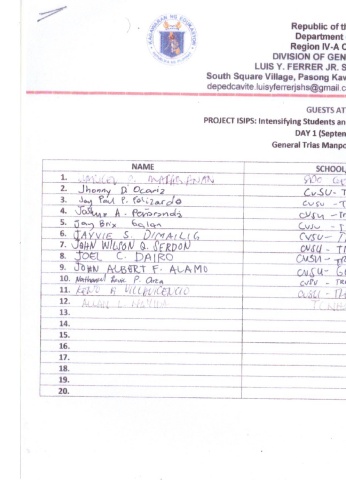 KAGAWARAN NG EDUKASYON
Republic of th
Department
Region IV-A C
DIVISION OF GEN
LUIS Y. FERRER JR. S
South Square Village, Pasong Kaw
depedcavite.luisyferrerjshs@gmail.c
GUESTS AT
PROJECT ISIPS: Intensifying Students an
DAY 1 (Septem
General Trias Manpo
NAME SCHOOL
1.
2. Jhonny D Ocariz CvSU - T
3. Jay Paul P. Polizardo CvSU - T
4. Joshua A. CvSU - TR
5. Jay Brix CvSU - T
6. JAYVIE S. DIMAILIG CvSU - TR
7. JOHN WILSON Q. SERDON CVSU - T
8. JOEL C. DAIRO CVSU - TR
9. JOHN ALBERT F. ALAMO CVSU - G
10. Nathaniel P. CVSU - TR
11. VILLAVICENCIO CVSU - T
12.
13.
14.
15.
16.
17.
18.
19.
20.